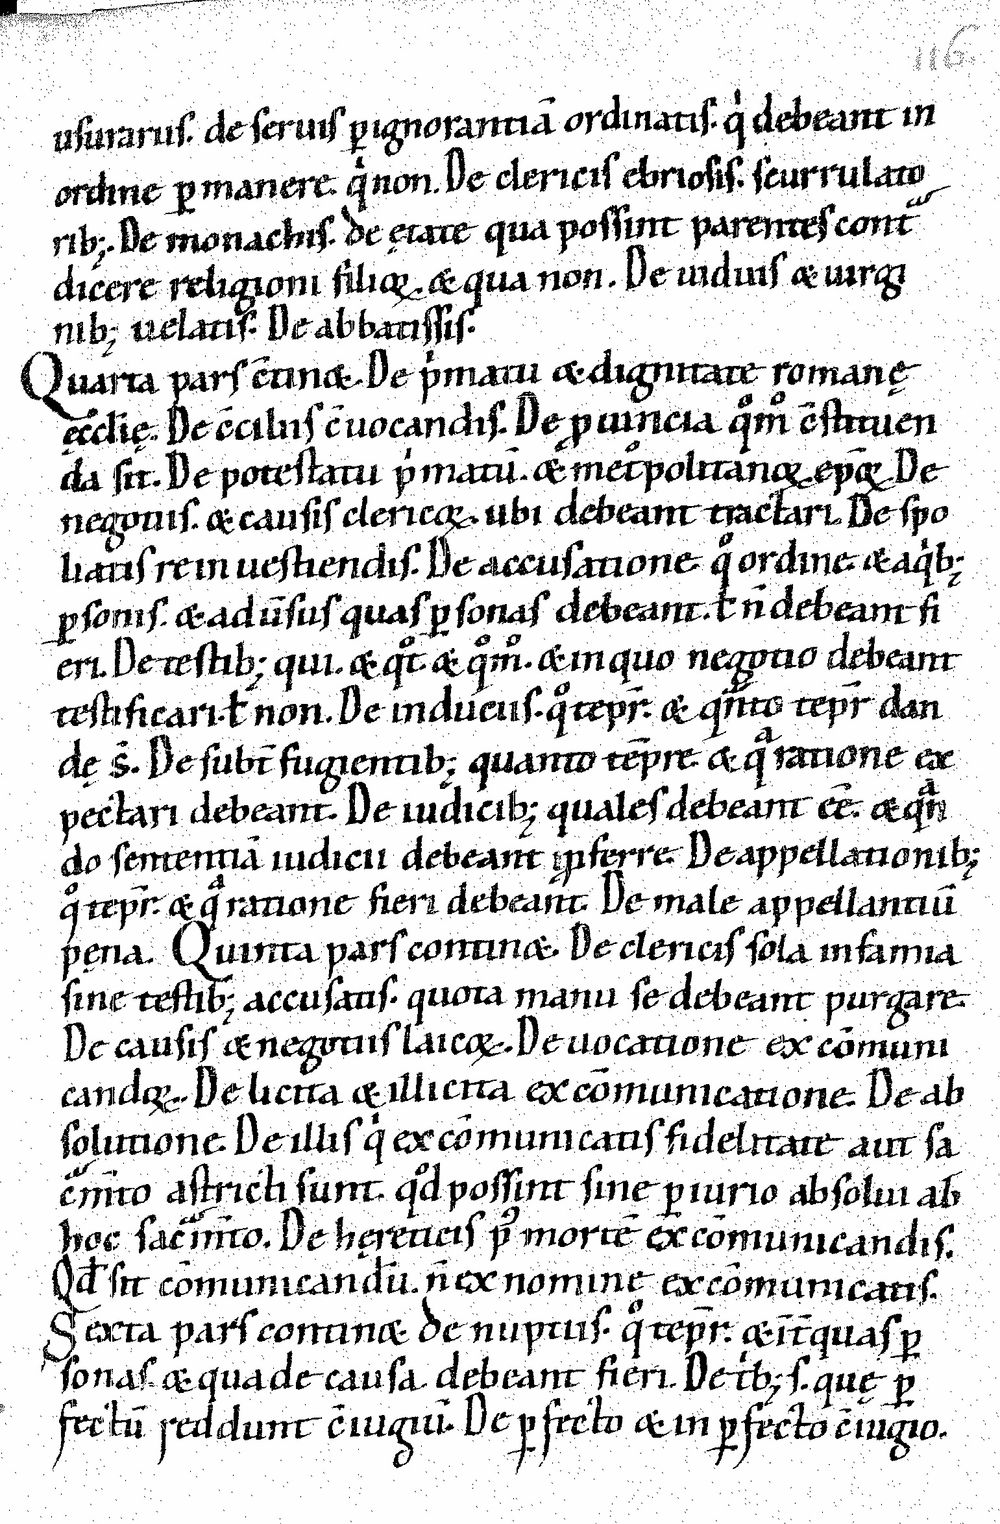 116.
usurariis. de seruis ꝑ ignorantiā ordinatis. qͥ debeant in
ordine ꝑmanere. qͥ non. De clericis ebriosis. scurrulato
ribꝫ. De monachis. de ętate qua possint parentes contᷓ
dicere religioni filioꝝ. & qua non. De uiduis & uirgi
nibꝫ uelatis. De abbatissis.
Quarta pars c̄tin&. De pͥmatu & dignitate romanę
ęccl̄ię. De c̄ciliis c̄uocandis. De ꝓuincia qͦm̄ c̄stituen
da sit. De potestatu pͥmatū. & metͦpolitanoꝝ. ep̄oꝝ. De
negotiis. & causis clericoꝝ. ubi debeant tractari. De spo
liatis reinuestiendis. De accusatione qͦ ordine. & a qͥbꝫ
ꝑsonis. & aduīsus quas ꝑsonas debeant. ł n̄ debeant fi
eri. De testibꝫ qui. & qͦt. & qͦm̄. & in quo negotio debeant
testificari. ł non. De induciis. qͦ tepr̄. & qᷓnto tepr̄ dan
dę s̄. De subt̄fugientibꝫ quanto tēpre. & qᷓ ratione ex
pectari debeant. De iudicibꝫ quales debeant ēē. & qᷓn
do sententiā iudicii debeant ꝓferre. De appellationibꝫ
qͦ tepr̄. & qᷓ ratione fieri debeant. De male appellantiū
pęna. Quinta pars contin&. De clericis sola infamia
sine testibꝫ accusatis. quota manu se debeant purgare.
De causis & negotiis laicoꝝ. De uocatione excōmuni
candoꝝ. De licita & illicita excōmunicatione. De ab
solutione. De illis qͥ excōmunicatis fidelitate aut sa
cᷓm̄to astricti sunt. qͦd possint sine ꝑiurio absolui ab
hoc sacᷓm̄to. De hęreticis pꝰ mortē excōmunicandis.
Qđ sit cōmunicandū. n̄ ex nomine excōmunicatis.
Sexta pars contin& de nuptiis. qͦ tepr̄. & īt̄ quas ꝑ
sonas. & qua de causa debeant fieri. De tͥbꝫ s. quę ꝑ
fectū reddunt c̄iugiū. De ꝑfecto & inꝑfecto c̄iugio.